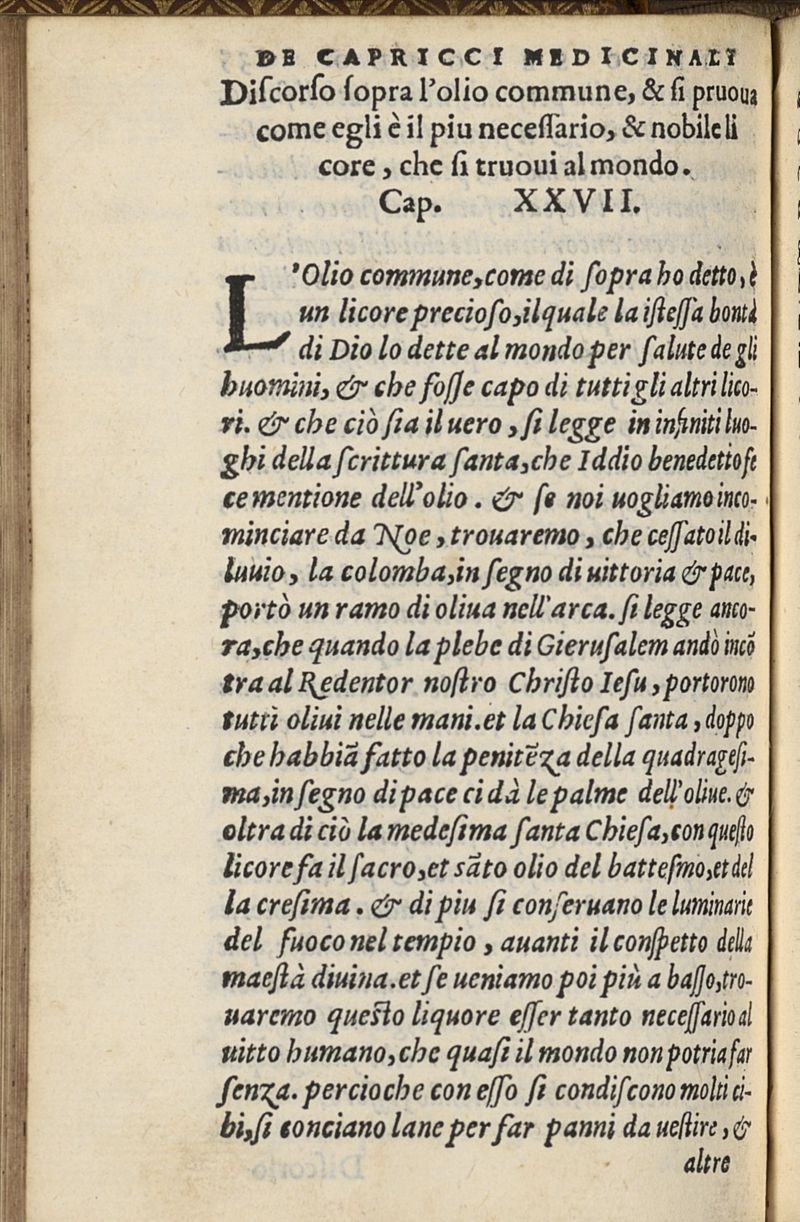 DE CAPRICCI MEDICINALI
Diſcorſo ſopra l'olio commune, & ſi pruoua
come egli è il piu neceſſario, & nobile li
core, che ſi truoui al mondo.
Cap. XXVII.
L'Olio commune, come di ſopra ho detto, è
un licore precioſo, il quale la iſteſſa bontà
di Dio lo dette al mondo per ſalute de gli
huomini, & che foſſe capo di tutti gli altri lico-
ri. & che ciò ſia il uero, ſi legge in infiniti luo-
ghi della ſcrittura ſanta, che Iddio benedetto fe
ce mentione dell'olio. & ſe noi uogliamo inco-
minciare da Noe, trouaremo, che ceſſato il di-
luuio, la colomba, in ſegno di uittoria & pace,
portò un ramo di oliua nell'arca. ſi legge anco-
ra, che quando la plebe di Gieruſalem andò incõ
tra al Redentor noſtro Chriſto Ieſu, portorono
tutti oliui nelle mani. et la Chieſa ſanta, doppo
che habbiã fatto la penitẽza della quadrageſi-
ma, in ſegno di pace ci dà le palme dell'oliue. &
oltra di ciò la medeſima ſanta Chieſa, con queſto
licore fa il ſacro, et sãto olio del batteſmo, et del
la creſima. & di piu ſi conſeruano le luminarie
del fuoco nel tempio, auanti il conſpetto della
maeſtà diuina. et ſe ueniamo poi più a baſſo, tro-
uaremo queſto liquore eſſer tanto neceſſario al
uitto humano, che quaſi il mondo non potria far
ſenza. percioche con eſſo ſi condiſcono molti ci-
bi, ſi conciano lane per far panni da ueſtire, &
altre